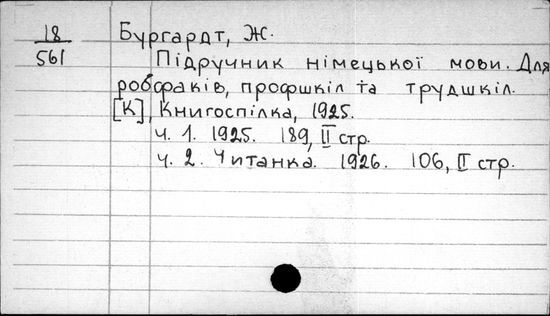 18
561
Бургардт, Ж.
Підручник німецької мови. Для
робфаків, профшкіл та трудшкіл.
[К], Книгоспілка, 1925.
ч. 1. 1925. 189, II стр.
ч. 2. Читанка. 1926. 106, II стр.